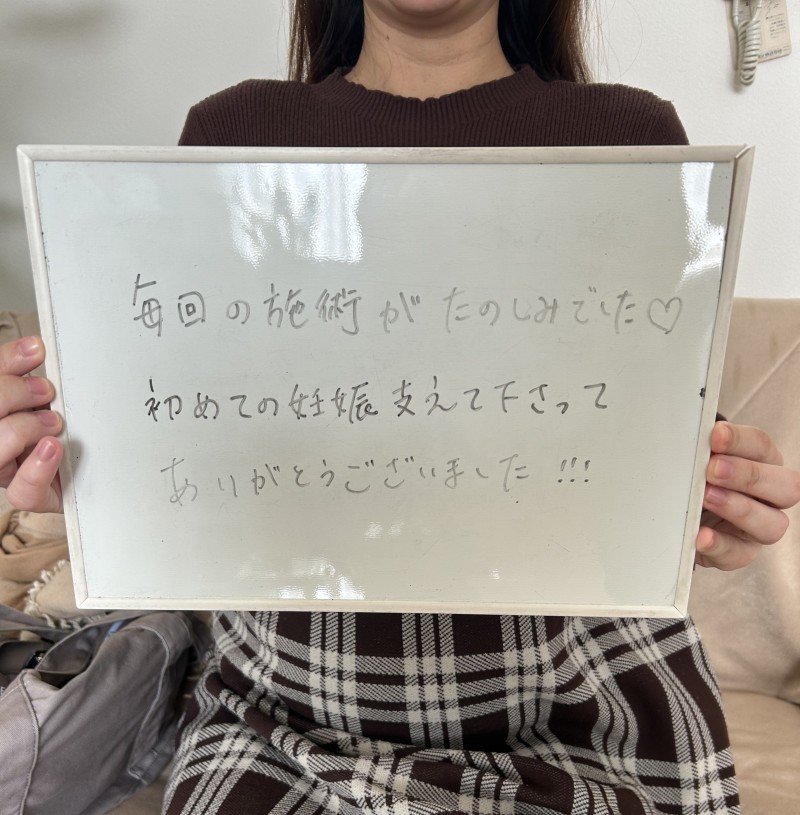 毎回の施術がたのしみでした♡
初めての妊娠支えて下さって
ありがとうございました!!!